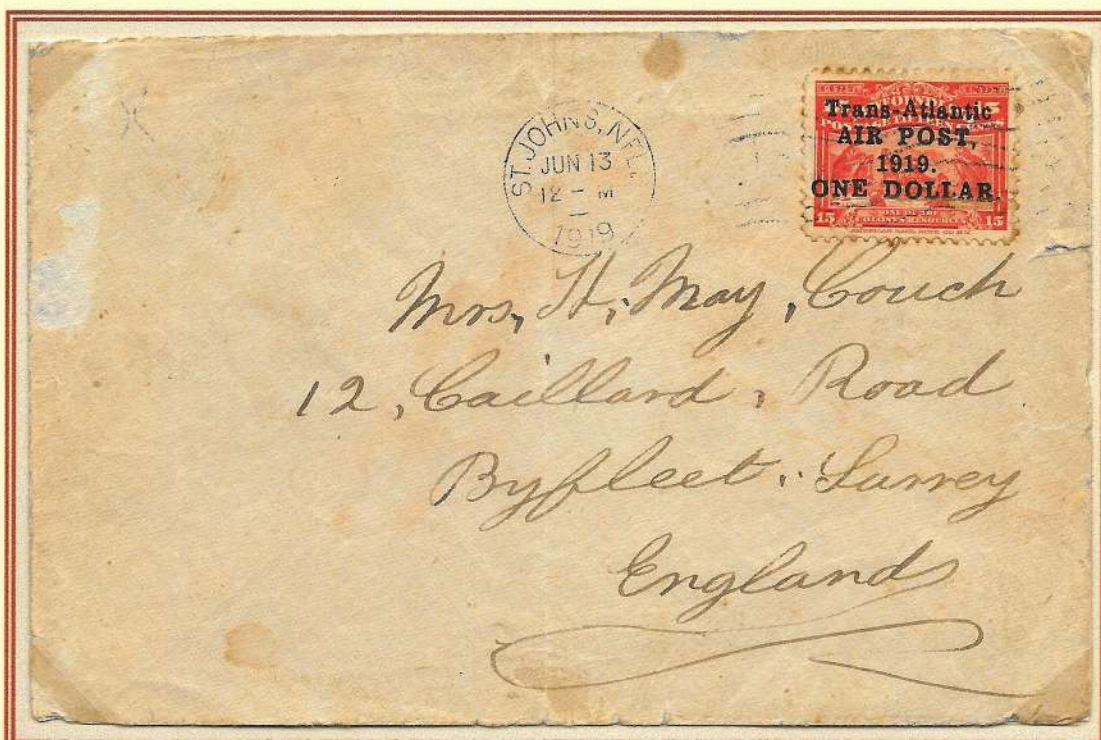 ST. JOHN'S, NFL.
JUN 13
12 - M
1919
Trans-Atlantic
AIR POST,
1919.
ONE DOLLAR.
15 ONE OF THE 15
COLONY'S RESOURCES
Mrs, H, May, Couch
12, Caillard, Road
Byfleet. Surrey
England